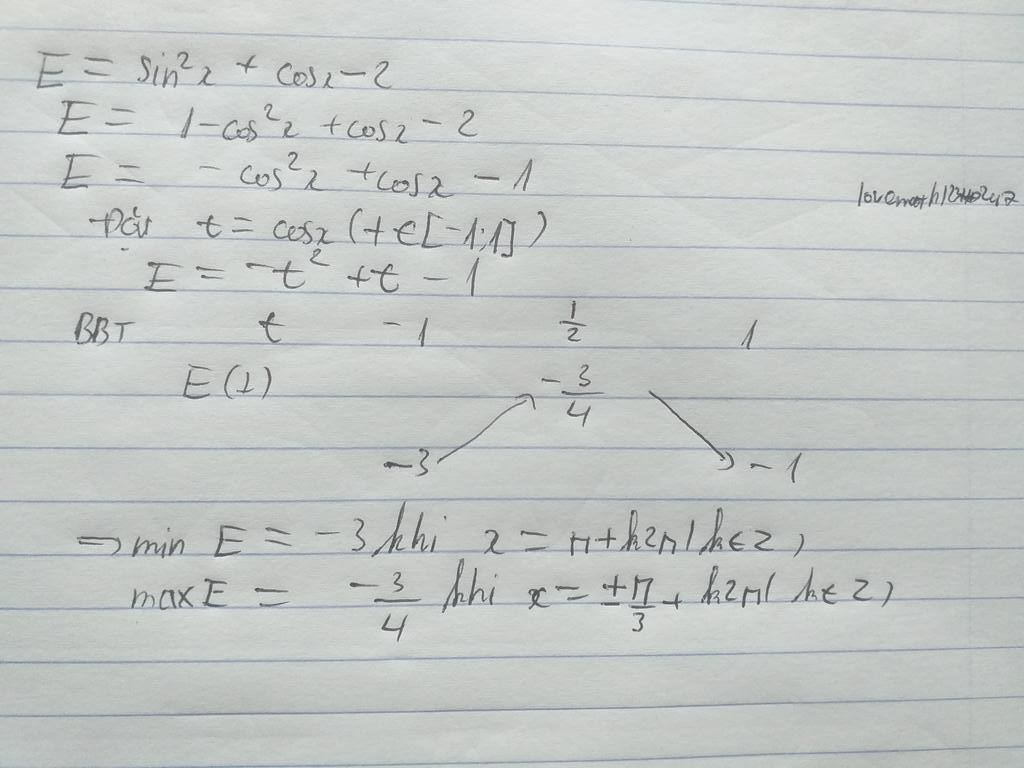 E = sin²x + cosx - 2
E = 1 - cos²x + cosx - 2
E = - cos²x + cosx - 1
Đặt t = cosx (t ∈ [-1;1])
E = -t² + t - 1
BBT t -1 1/2 1
E(t) -3/4
-3 -1
=> min E = -3 khi x = π + k2π (k ∈ Z)
max E = -3/4 khi x = ±π/3 + k2π (k ∈ Z)